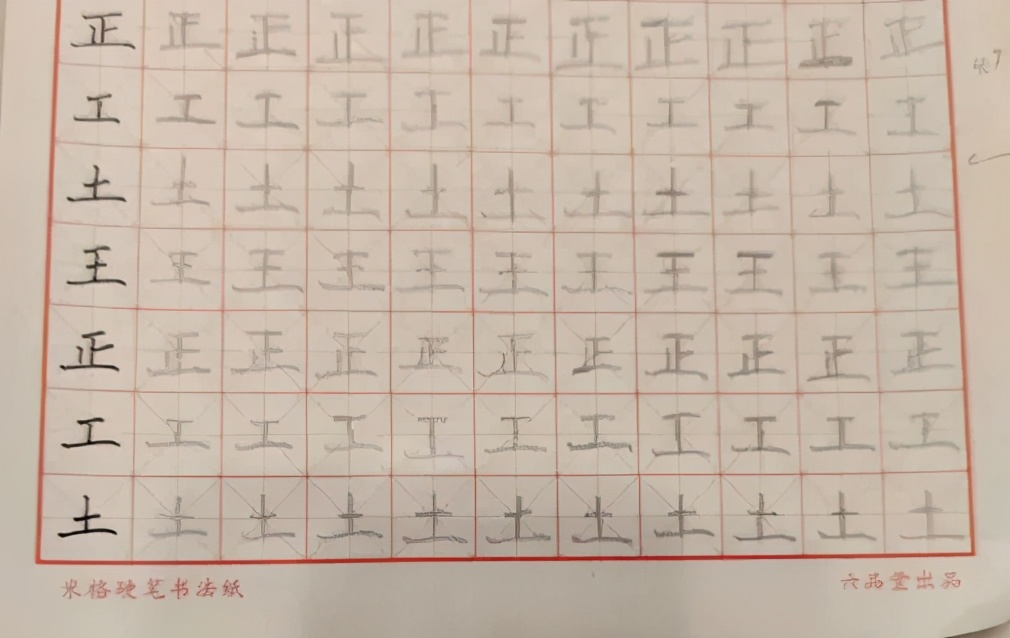 正正正正正正正正正正正
工工工工工工工工工工工
土土土土土土土土土土土
王王王王王王王王王王王
正正正正正正正正正正正
工工工工工工工工工工工
土土土土土土土土土土土
米格硬笔书法纸 六品堂出品